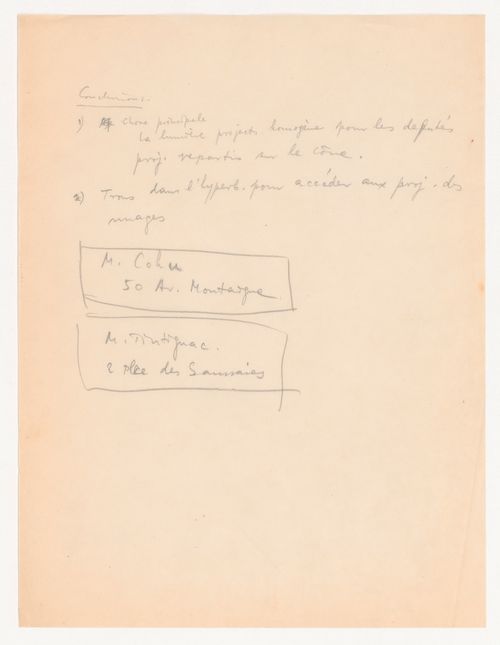 Conclusions.
1) Chose principale
la lumière projects homogène pour les députés
proj. repartis sur le cône.
2) Trous dans l'hyperb. pour accéder aux proj. des
nuages
M. Cohen
50 Av. Montaigne
M. Tintignac.
2 Place des Saussaies